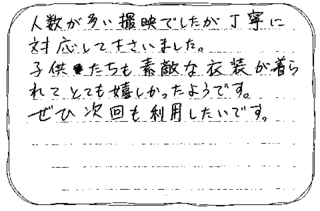 人数が多い撮映でしたが丁寧に
対応して下さいました。
子供たちも素敵な衣装が着ら
れてとても嬉しかったようです。
ぜひ次回も利用したいです。